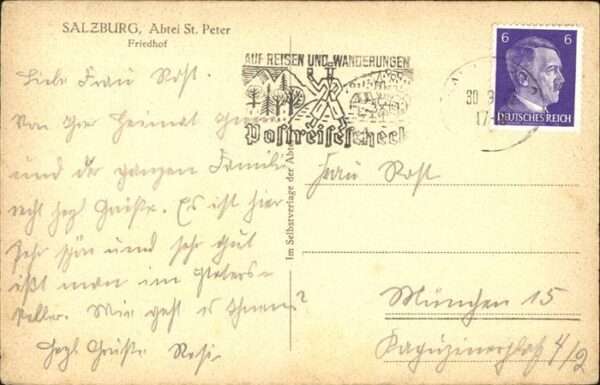 SALZBURG, Abtei St. Peter
Friedhof
Liebe Frau Rost.
Von Ihrer Heimat
und der ganzen Familie
recht herzl Grüße. Es ist hier
sehr schön und sehr gut
ißt man im Peters-
keller. Wie geht es Ihnen?
Herzl Grüße Resi
Im Selbstverlage der Abtei
AUF REISEN UND WANDERUNGEN
Postreisescheck
30 9
17-
6 6
DEUTSCHES REICH
Frau Rost
München 15
Kapuzinerplatz 4/2